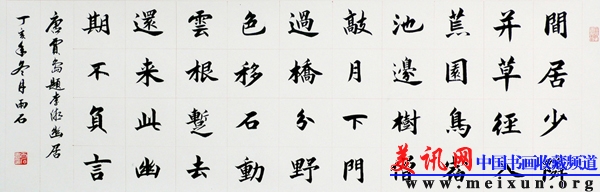 間居少隣
并草徑入
荒園鳥宿
池邊樹僧
敲月下門
過橋分野
色移石動
雲根蹔去
還来此幽
期不負言
唐賈島題李凝幽居
丁亥年冬月雨石
美讯网 中国书画收藏频道
http://www.meixun.org